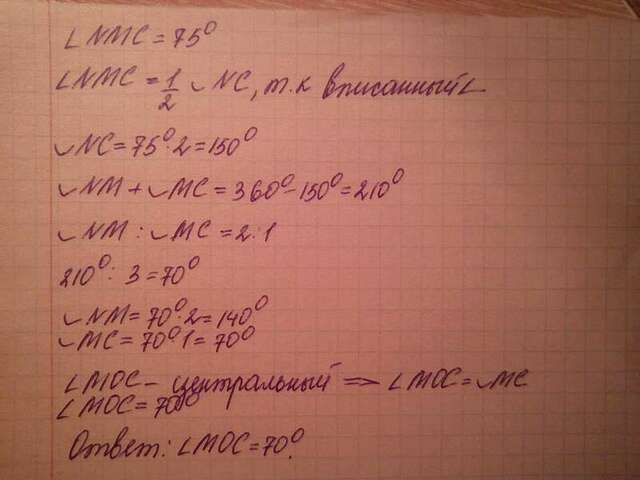 ∠NMC = 75°
∠NMC = 1/2 ◡NC, т.к вписанный ∠
◡NC = 75°·2 = 150°
◡NM + ◡MC = 360° - 150° = 210°
◡NM : ◡MC = 2:1
210° : 3 = 70°
◡NM = 70°·2 = 140°
◡MC = 70°·1 = 70°
∠MOC - центральный ⇒ ∠MOC = ◡MC
∠MOC = 70°
Ответ: ∠MOC = 70°.